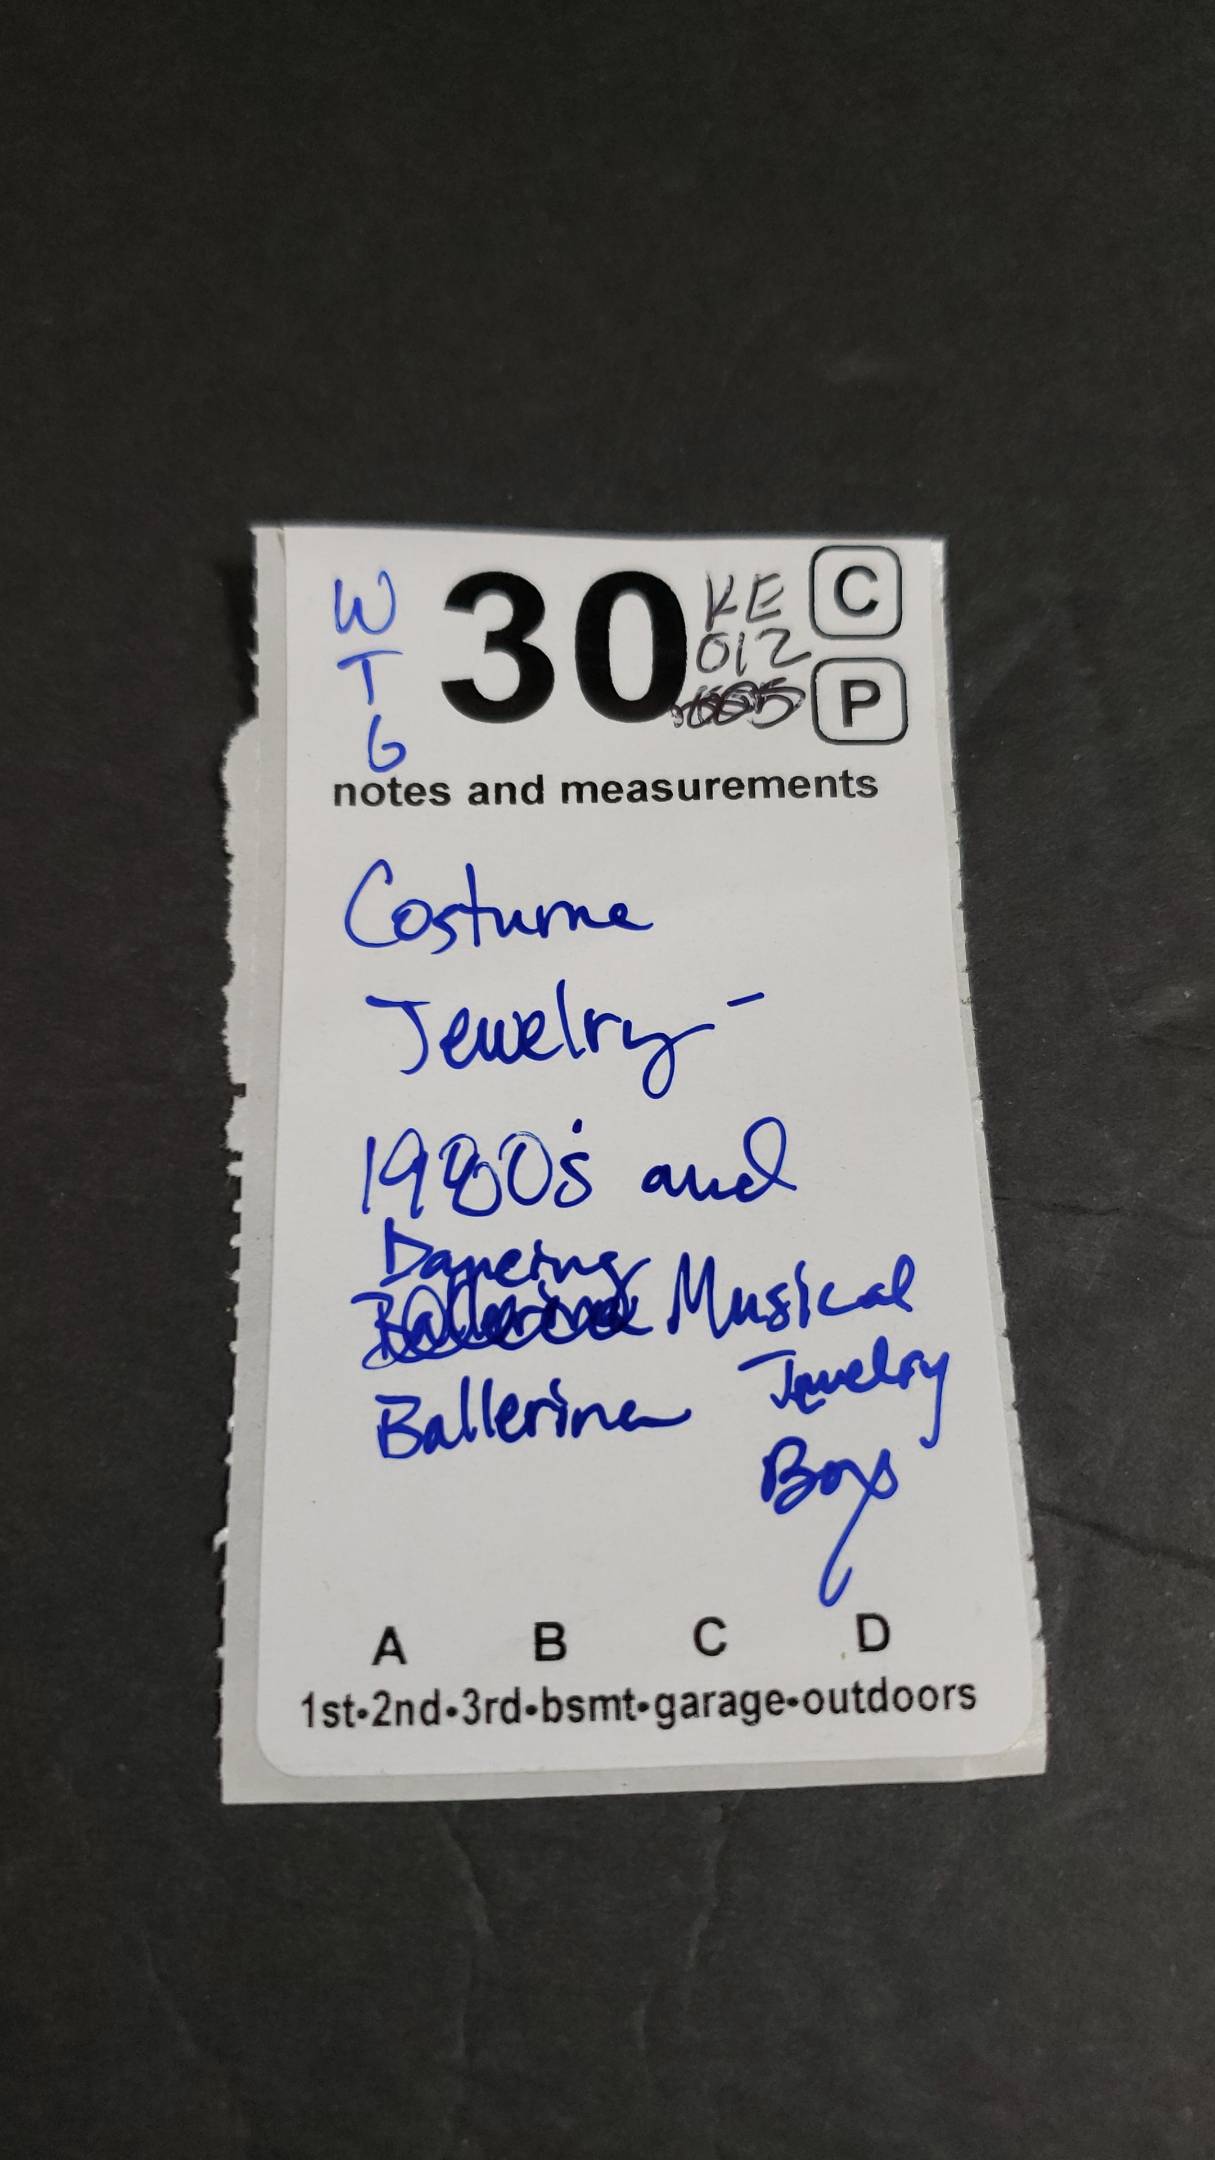 W
T
G
30
KE
012
C
P
notes and measurements
Costume
Jewelry -
1980's and
Dancing
Musical
Ballerina
Jewelry
Box
A B C D
1st•2nd•3rd•bsmt•garage•outdoors